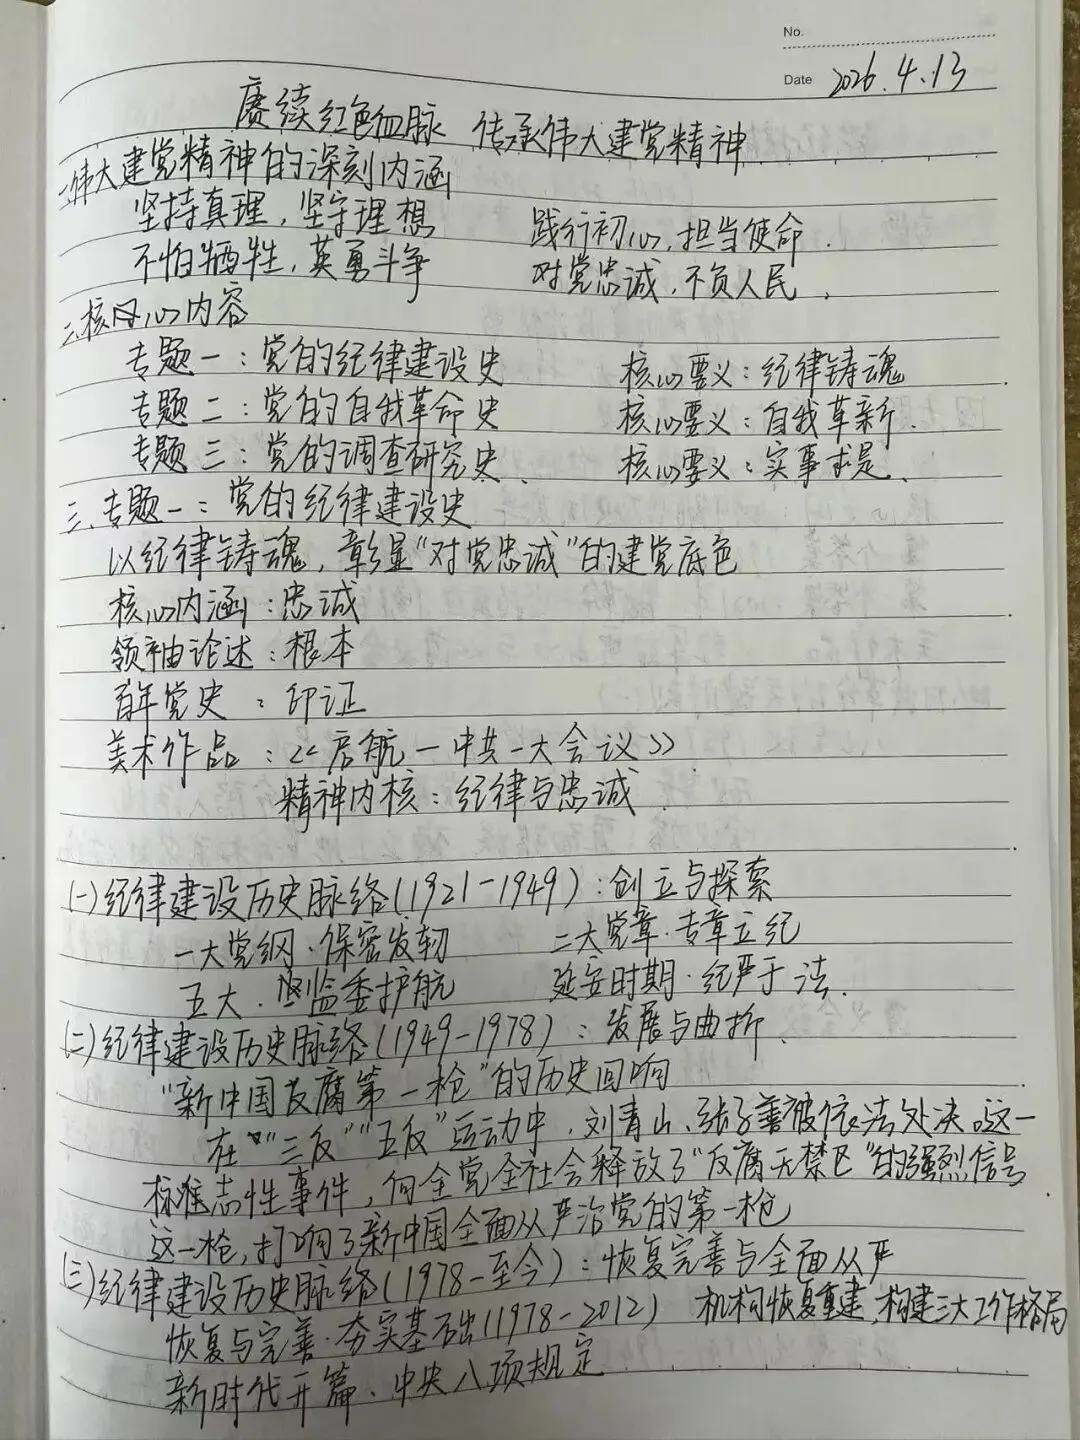 No.
Date 2026.4.13
赓续红色血脉 传承伟大建党精神
一.伟大建党精神的深刻内涵
坚持真理，坚守理想 践行初心，担当使命.
不怕牺牲，英勇斗争 对党忠诚，不负人民.
二.核心内容
专题一：党的纪律建设史 核心要义：纪律铸魂
专题二：党的自我革命史 核心要义：自我革新.
专题三：党的调查研究史 核心要义：实事求是.
三、专题一：党的纪律建设史
以纪律铸魂，彰显“对党忠诚”的建党底色
核心内涵：忠诚
领袖论述：根本
百年党史：印证
美术作品：《启航—中共一大会议》
精神内核：纪律与忠诚
(一)纪律建设历史脉络(1921-1949)：创立与探索
一大党纲·保密发轫 二大党章·专章立纪
五大.监委护航 延安时期·纪严于法.
(二)纪律建设历史脉络(1949-1978)：发展与曲折.
“新中国反腐第一枪”的历史回响
在“三反”“五反”运动中，刘青山、张子善被依法处决。这一
标志性事件，向全党全社会释放了“反腐无禁区”的强烈信号
这一枪，打响了新中国全面从严治党的第一枪
(三)纪律建设历史脉络(1978-至今)：恢复完善与全面从严
恢复与完善·夯实基础(1978-2012) 机构恢复重建，构建三大工作格局
新时代开篇、中央八项规定